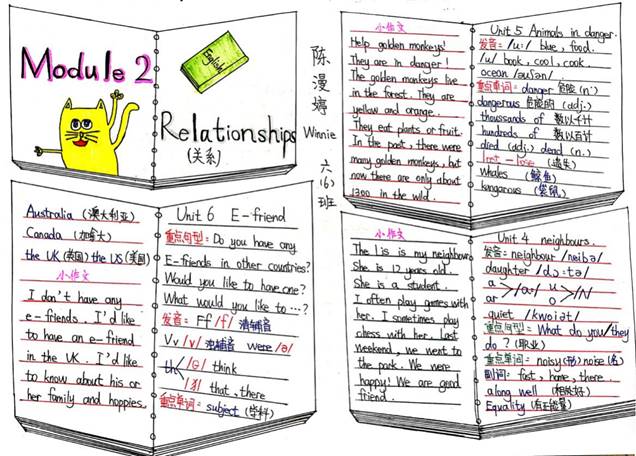 Module 2
English
Relationships
(关系)
陈漫婷
Winnie
六(6)班
小作文
Help golden monkeys!
They are in danger!
The golden monkeys live
in the forest. They are
yellow and orange.
They eat plants or fruit.
In the past, there were
many golden monkeys, but
now there are only about
1300 in the wild.
Unit 5 Animals in danger.
发音: /u:/ blue, food.
/u/ book, cool, cook.
ocean /əuʃən/.
重点单词: danger 危险 (n.)
dangerous 危险的 (adj.)
thoussands of 数以千计
hundreds of 数以百计
died (adj.) dead (n.)
lost - lose (遗失)
whales (鲸鱼)
kangarous (袋鼠)
Australia (澳大利亚)
Canada (加拿大)
the UK (英国) the US (美国)
小作文
I don't have any
e-friends. I'd like
to have an e-friend
in the UK. I'd like
to know about his or
her family and hoppies.
Unit 6 E-friend
重点句型: Do you have any
E-friends in other countries?
Would you like to have one?
What would you like to …?
发音: Ff /f/ 清辅音
Vv /v/ 浊辅音 were /ə/
th /θ/ think
/ð/ that, there
重点单词: subject (学科)
小作文
The 1is is my neighbour
She is 12 years old.
She is a student.
I often play games with
her. I sometimes play
chess with her. Last
weekend, we went to
the park. We were
happy! We are good
friend.
Unit 4 neighbours.
发音: neighbour /neibə/
daughter /dɔ:tə/
a u
>/a:/ >/ʌ/
ar o
quiet /kwoiət/
重点句型: What do you/they
do? (职业)
重点单词: noisy (形) noise (名)
副词: fast, home, there.
along well (相处好)
Equality (有正能量)